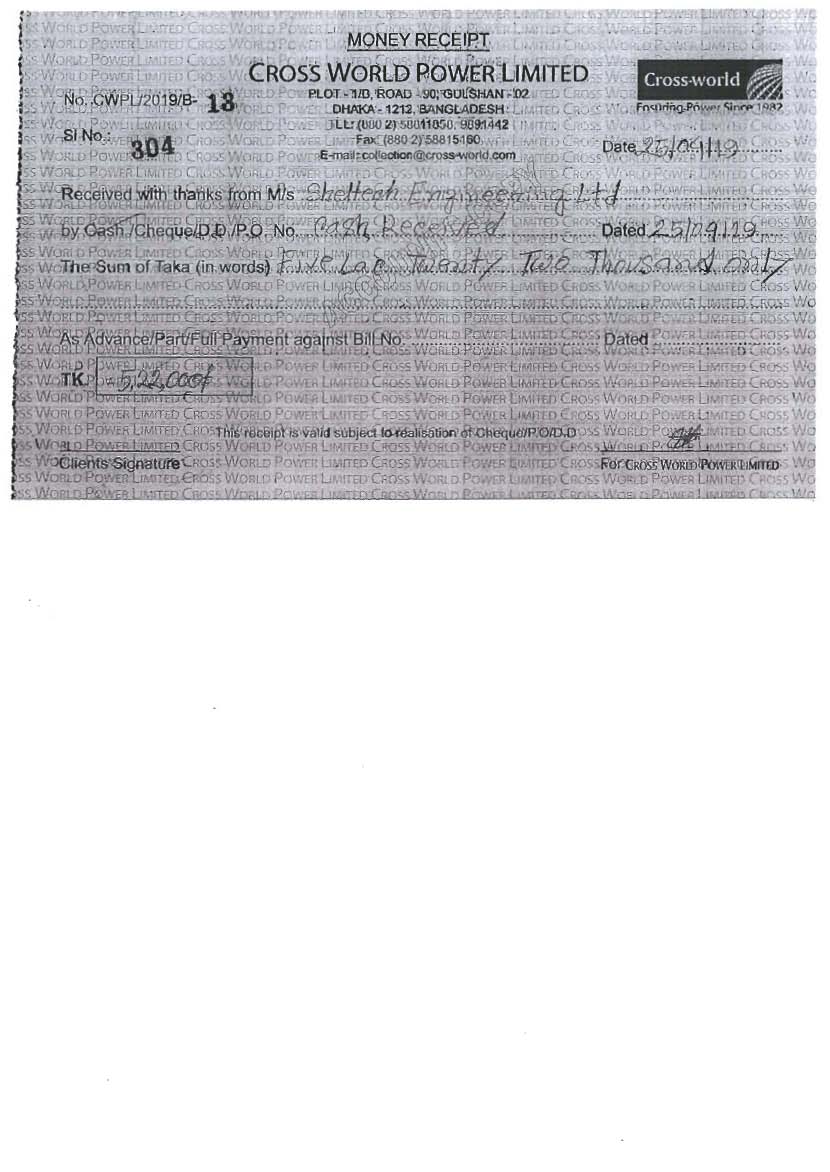 MONEY RECEIPT
CROSS WORLD POWER LIMITED
Cross-world
Ensuring Power Since 1982
No. CWPL/2019/B- 13
PLOT - 1/D, ROAD - 90, GULSHAN - 02
DHAKA - 1212, BANGLADESH
TEL: (880 2) 58811850, 9891442
Fax: (880 2) 58815160
E-mail: collection@cross-world.com
Sl No.: 304
Date 25/09/19
Received with thanks from M/s Sheltech Engineering Ltd
by Cash /Cheque/D.D /P.O. No. Cash Received Dated 25/09/19
The Sum of Taka (in words) Five Lac Twenty Two Thousand only
As Advance/Part/Full Payment against Bill No. Dated
TK. = 5,22,000/
This receipt is valid subject to realisation of Cheque/P.O/D.D
Clients Signature
For CROSS WORLD POWER LIMITED